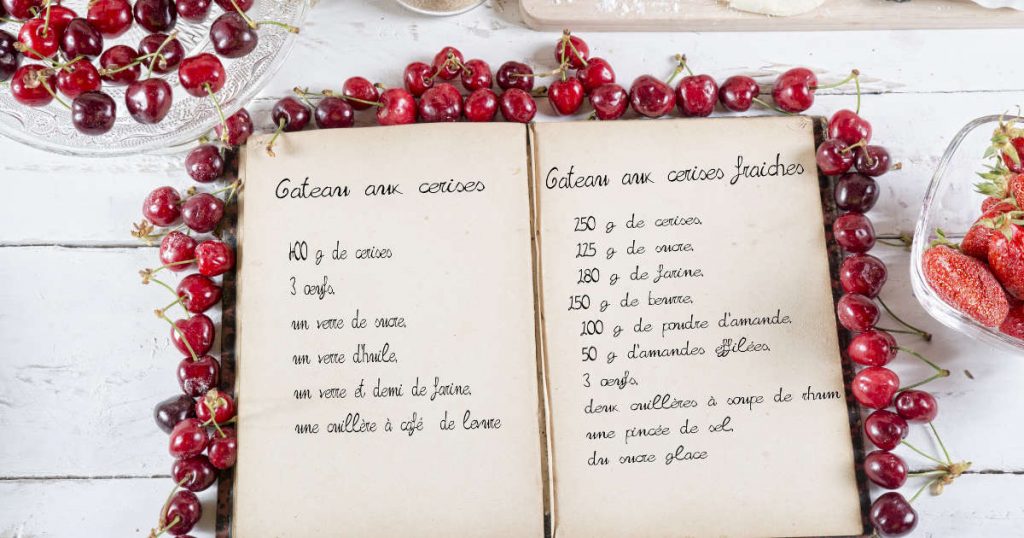 Gateau aux cerises
400 g de cerises
3 œufs,
un verre de sucre,
un verre d'huile,
un verre et demi de farine,
une cuillère à café de levure
Gateau aux cerises fraiches
250 g de cerises,
125 g de sucre,
180 g de farine,
150 g de beurre,
100 g de poudre d'amande,
50 g d'amandes effilées,
3 œufs,
deux cuillères à soupe de rhum
une pincée de sel,
du sucre glace